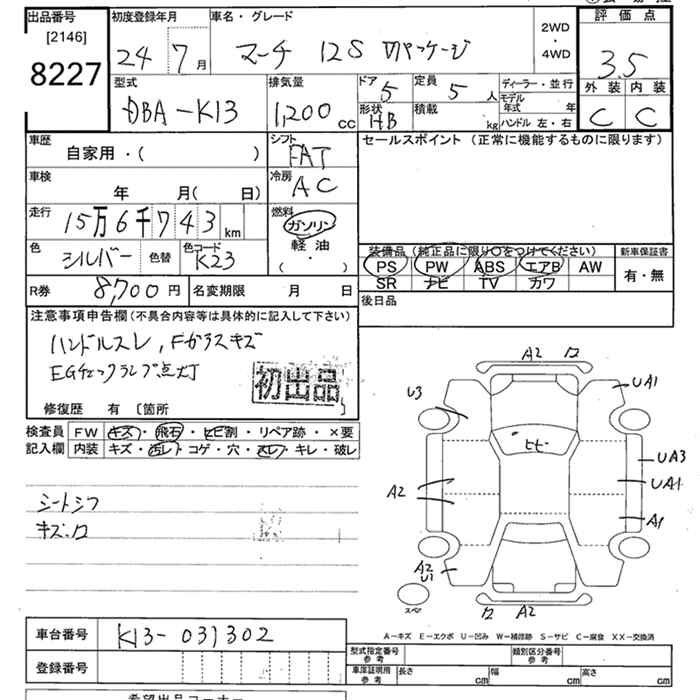 出品番号 初度登録年月 車名・グレード 2WD ・ 4WD 評価点
[2146]
8227 24年 7月 マーチ 12S Vパッケージ 3.5
型式 排気量 ドア 5 定員 5人 ディーラー・並行 外装 内装
DBA-K13 1,200cc 形状 HB 積載 kg モデル年式 年 C C
ハンドル 左・右
車歴 シフト セールスポイント (正常に機能するものに限ります)
自家用・( ) FAT
車検 冷房
年 月( 日) AC
走行 燃料
15万6千743km ガソリン
色 色替 色コード 軽油
シルバー K23 ( ・ )
装備品 (純正品に限り○をつけてください) 新車保証書
PS PW ABS エアB AW 有・無
SR ナビ TV カワ
R券 8,700円 名変期限 月 日 後日品
注意事項申告欄(不具合内容等は具体的に記入して下さい)
ハンドルスレ, Fガラスキズ
EGチェックランプ点灯
初出品
修復歴 有 〔箇所 〕
検査員 FW キズ・飛石・ヒビ割・リペア跡・×要
記入欄 内装 キズ・汚レ・コゲ・穴・スレ・キレ・破レ
シートシフ
キズ.ロ
A2
U3
UA1
ヒビ
UA3
UA1
A2
A1
A2
U1
A2
スペア
A-キズ E-エクボ U-凹み W-補修跡 S-サビ C-腐食 XX-交換済
車台番号 K13-031302
登録番号
型式指定番号 参考 類別区分番号 参考
車庫証明用 参考 長さ cm 幅 cm 高さ cm
希望出品コーナー